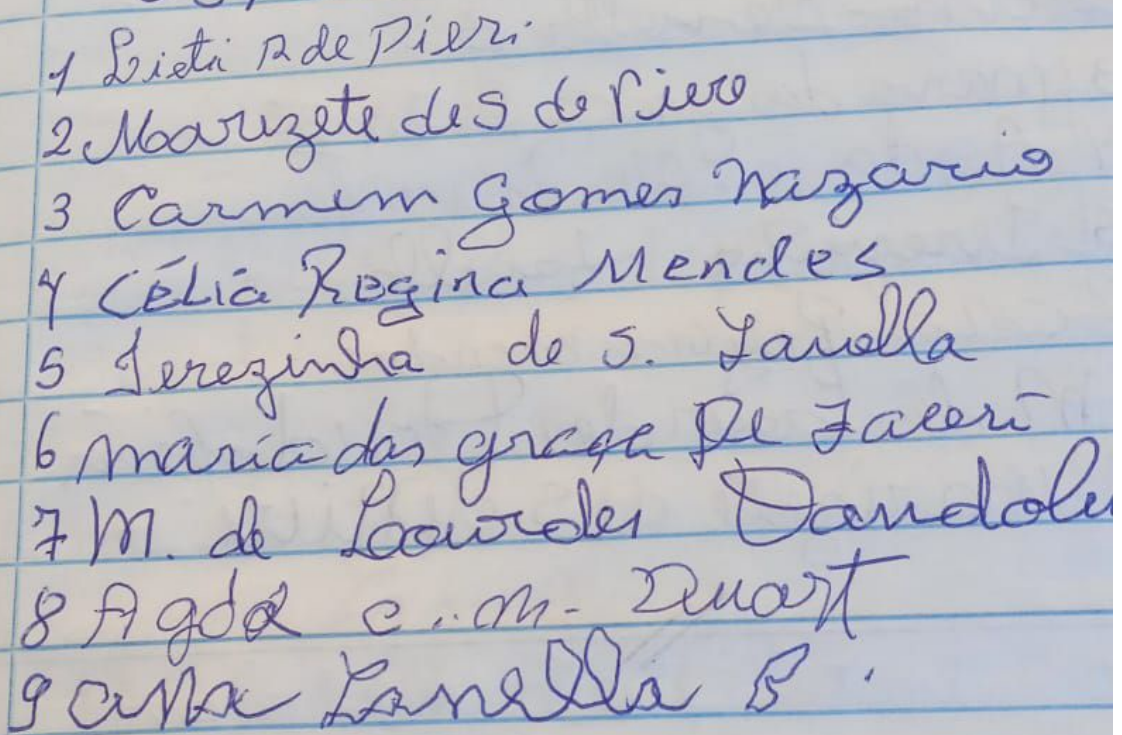 1 Lieti R de Pieri
2 Marizete de S de Piero
3 Carmem Gomes Nazario
4 Célia Regina Mendes
5 Terezinha de S. Zanella
6 maria das graça De
7 M. de Loourdes Dandolu
8 Agda c. m. Duart
9 ana Zanella B.